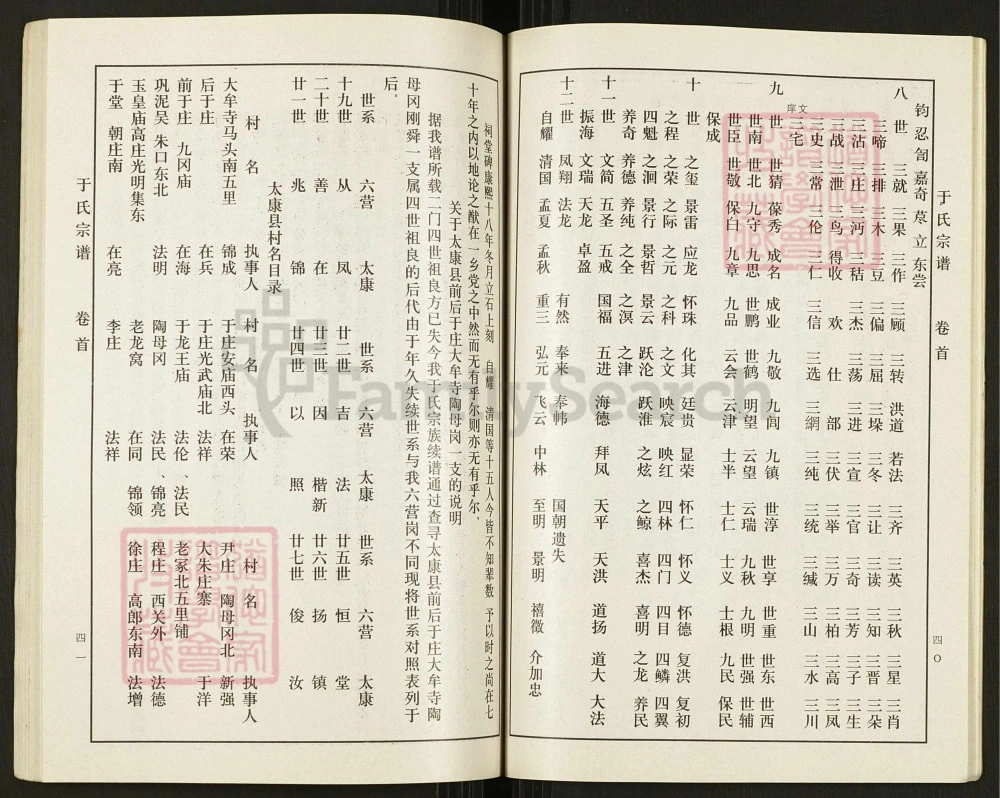 于氏宗谱 卷首 四〇
钧忍訇嘉奇 立东尝
八世 三就 三果 三作 三顾 三转 洪道 若法 三齐 三英 三秋 三星 三肖
三啼 三排 三木 三豆 三偏 三屈 三垛 三冬 三让 三读 三知 三晋 三朵
三沾 三庄 三沔 三秸 三杰 三荡 三进 三宣 三官 三奇 三芳 三子 三生
三战 三泄 三鸟 得收 欢 仕 部 三伏 三举 三万 三柏 三高 三凤
三史 三常 三伦 三仁 三信 三选 三網 三纯 三统 三缄 三山 三水 三川
三宅 文庠
九世 世猜 葆秀 成名 成业 九敬 九闾 九镇 世淳 世享 世重 世东 世西
世南 世北 九守 九思 世鹏 世鹤 明望 云望 云瑞 九秋 九明 世强 世辅
世臣 世敬 保白 九章 九品 云会 云津 士半 士仁 士义 士根 九民 保民
保成
十世 之玺 景雷 应龙 怀珠 化其 廷贵 显荣 怀仁 怀义 怀德 复洪 复初
之程 之荣 之际 之元 之科 之文 映宸 映红 四林 四门 四目 四鳞 四翼
四魁 之洄 景行 景哲 景云 跃沦 跃淮 之炫 之鲸 喜杰 喜明 之龙 养民
养奇 养德 养纯 之全 之溟 之津
十一世 文简 五圣 五戒 国福 五进 海德 拜凤 天平 天洪 道扬 道大 大法
振海 文瑞 天龙 卓盈
十二世 凤翔 法龙 有然 奉来 奉帏 国朝遗失
自耀 清国 孟夏 孟秋 重三 弘元 飞云 中林 至明 景明 禧徵 介加忠
祠堂碑康熙十八年冬月立石上刻 自耀 清国等十五人今皆不知辈数 予以时之尚在七
十年之内以地论之猷在一乡党之中然而无有乎尔则亦无有乎尔。
关于太康县前后于庄大牟寺陶母岗一支的说明
据我谱所载二门四世祖良方已失今我于氏宗族续谱通过查寻太康县前后于庄大牟寺陶
母冈刚舜一支属四世祖良的后代由于年久失续世系与我六营岗不同现将世系对照表列于
后。
世系 六营 太康 世系 六营 太康 世系 六营 太康
十九世 从 凤 廿二世 吉 法 廿五世 恒 堂
二十世 善 在 廿三世 因 楷新 廿六世 扬 镇
廿一世 兆 锦 廿四世 以 照 廿七世 俊 汝
太康县村名目录
村名 执事人 村名 执事人 村名 执事人
大牟寺马头南五里 锦成 于庄安庙西头 在荣 尹庄 陶母冈北 新强
后于庄 在兵 于庄光武庙北 法祥 大朱庄寨 于洋
前于庄 九冈庙 在海 于龙王庙 法伦、法民 老冢北五里铺
巩泥吴 朱口东北 法明 陶母冈 法民、锦亮 程庄 西关外 法德
玉皇庙高庄光明集东 老龙窝 在同 锦领 徐庄 高郎东南 法增
于堂 朝庄南 在亮 李庄 法祥
于氏宗谱 卷首 四一
FamilySearch